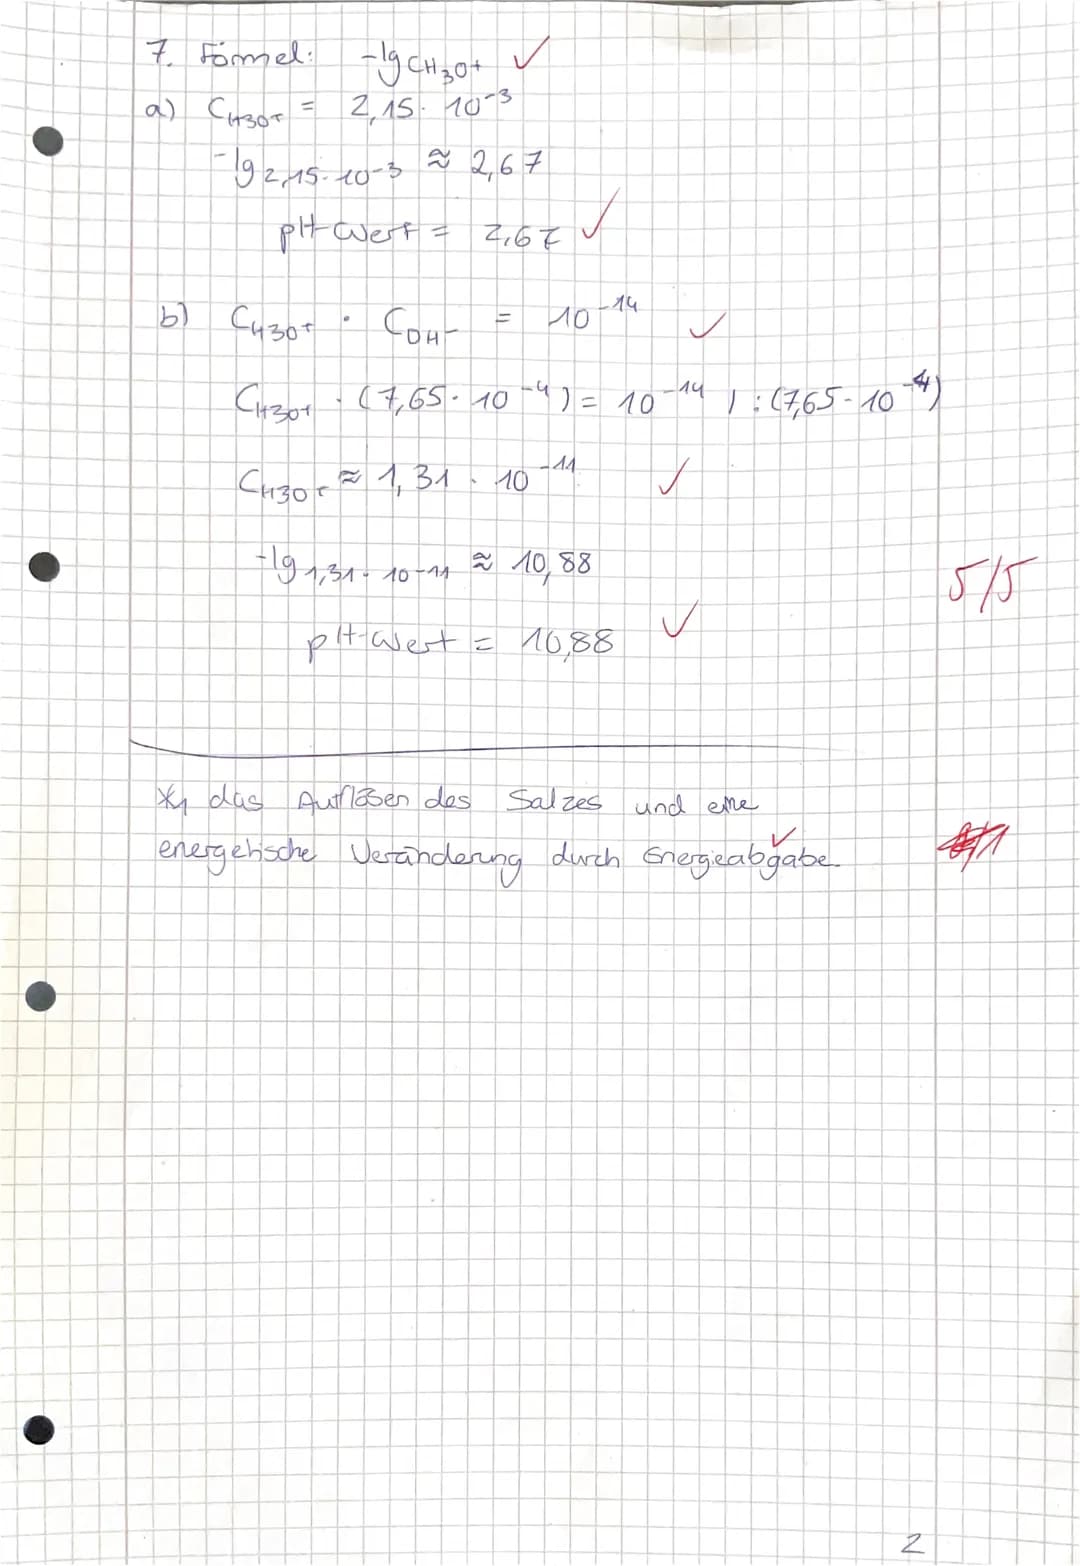 7. Formel: -lg cH3O+ ✓
a) CH3O+ = 2,15 · 10^-3
-lg 2,15 · 10^-3 ≈ 2,67
pH-Wert = 2,67 ✓
b) CH3O+ · COH- = 10^-14 ✓
CH3O+ · (7,65 · 10^-4) = 10^-14 | : (7,65 · 10^-4)
CH3O+ ≈ 1,31 · 10^-11 ✓
-lg 1,31 · 10^-11 ≈ 10,88
5/5
pH-Wert = 10,88 ✓
*1 das Auflösen des Salzes und eine
energetische Veränderung durch Energieabgabe. ✓
2